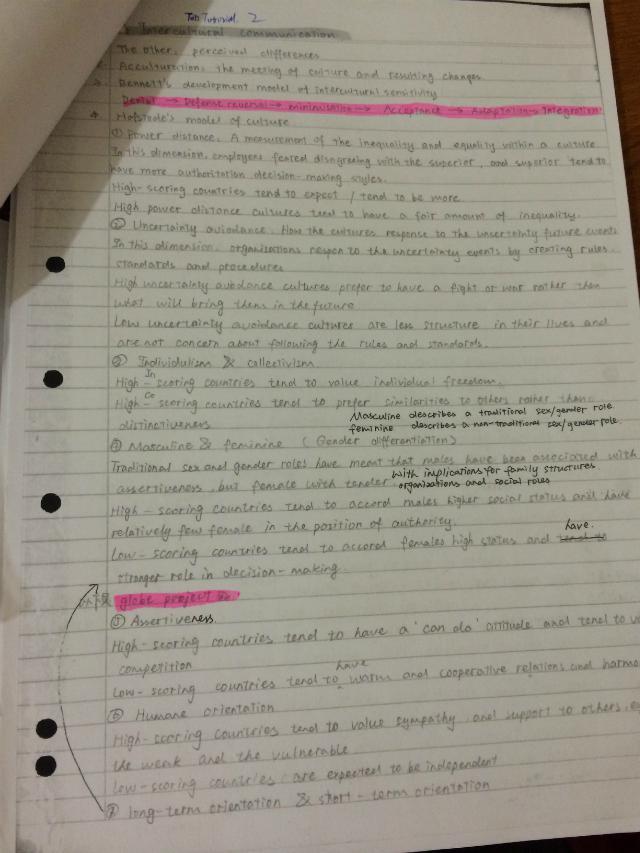 Tutorial 2
Intercultural communication
The other, perceived differences
Acculturation: the meeting of culture and resulting changes
Bennett's development model of intercultural sensitivity
Denial → Defense reversal → minimisation → Acceptance → Adaptation → Integration
Hofstede's model of culture
① Power distance. A measurement of the inequality and equality within a culture
In this dimension, employees feared disagreeing with the superior, and superior tend to
have more authoritation decision-making styles.
High-scoring countries tend to expect / tend to be more
High power distance cultures tend to have a fair amount of inequality.
② Uncertainty avoidance. How the cultures response to the uncertainty future events
In this dimension, organisations respon to the uncertainty events by creating rules,
standards and procedures
High uncertainty avoidance cultures prefer to have a fight or war rather than
what will bring them in the future
Low uncertainty avoidance cultures are less structure in their lives and
are not concern about following the rules and standards.
③ Individulism & collectivism
High-In scoring countries tend to value individual freedom.
High-Co scoring countries tend to prefer similarities to others rather than
distinctiveness
Masculine describes a traditional sex/gender role.
feminine describes a non-traditional sex/gender role.
④ Masculine & feminine (Gender differentiation)
Traditional sex and gender roles have meant that males have been associated with
assertiveness, but female with tender
with implications for family structures
organisations and social roles
High-scoring countries tend to accord males higher social status and have
relatively few female in the position of authority.
Low-scoring countries tend to accord females high status and have
stronger role in decision-making.
globe project
⑤ Assertiveness
High-scoring countries tend to have a 'can do' attitude and tend to
competition
Low-scoring countries tend to have warm and cooperative relations and
⑥ Humane orientation
High-scoring countries tend to value sympathy and support to others,
the weak and the vulnerable
Low-scoring countries are expected to be independent
⑦ long-term orientation & short-term orientation